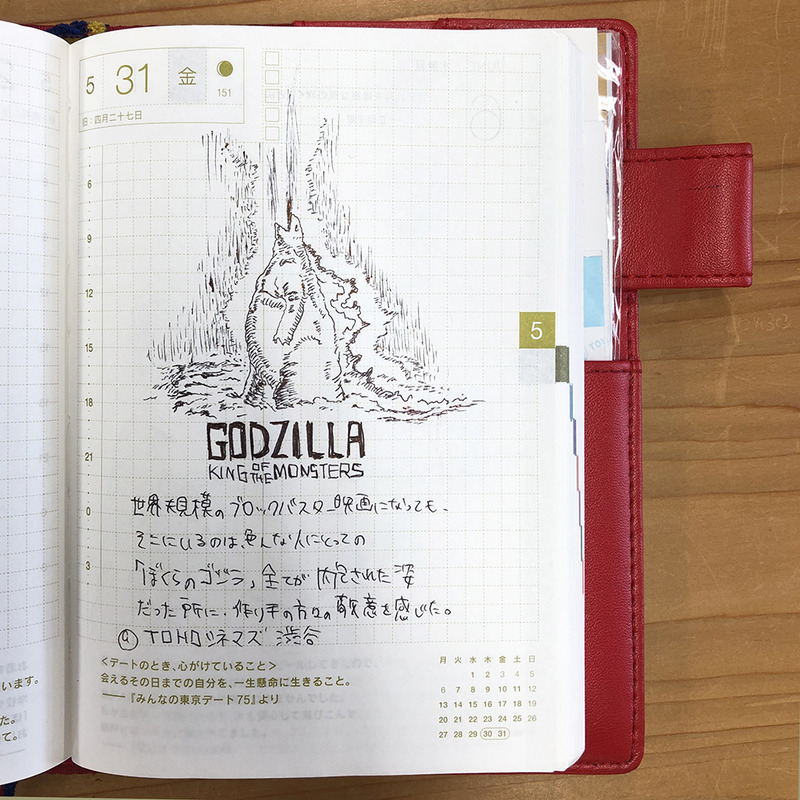 5 31 金
151
旧：四月二十七日
6
9
12
15
5
18
21
0
3
GODZILLA
KING OF THE MONSTERS
世界規模のブロックバスター映画になっても、
そこにいるのは、色んな人にとっての
「ぼくらのゴジラ」全てが肯定された姿
だった所に、作り手の方々の敬意を感じた。
@ TOHOシネマズ 渋谷
＜デートのとき、心がけていること＞
会えるその日までの自分を、一生懸命に生きること。
——『みんなの東京デート75』より
月 火 水 木 金 土 日
1 2 3 4 5
6 7 8 9 10 11 12
13 14 15 16 17 18 19
20 21 22 23 24 25 26
27 28 29 30 31
います。
た。
て。